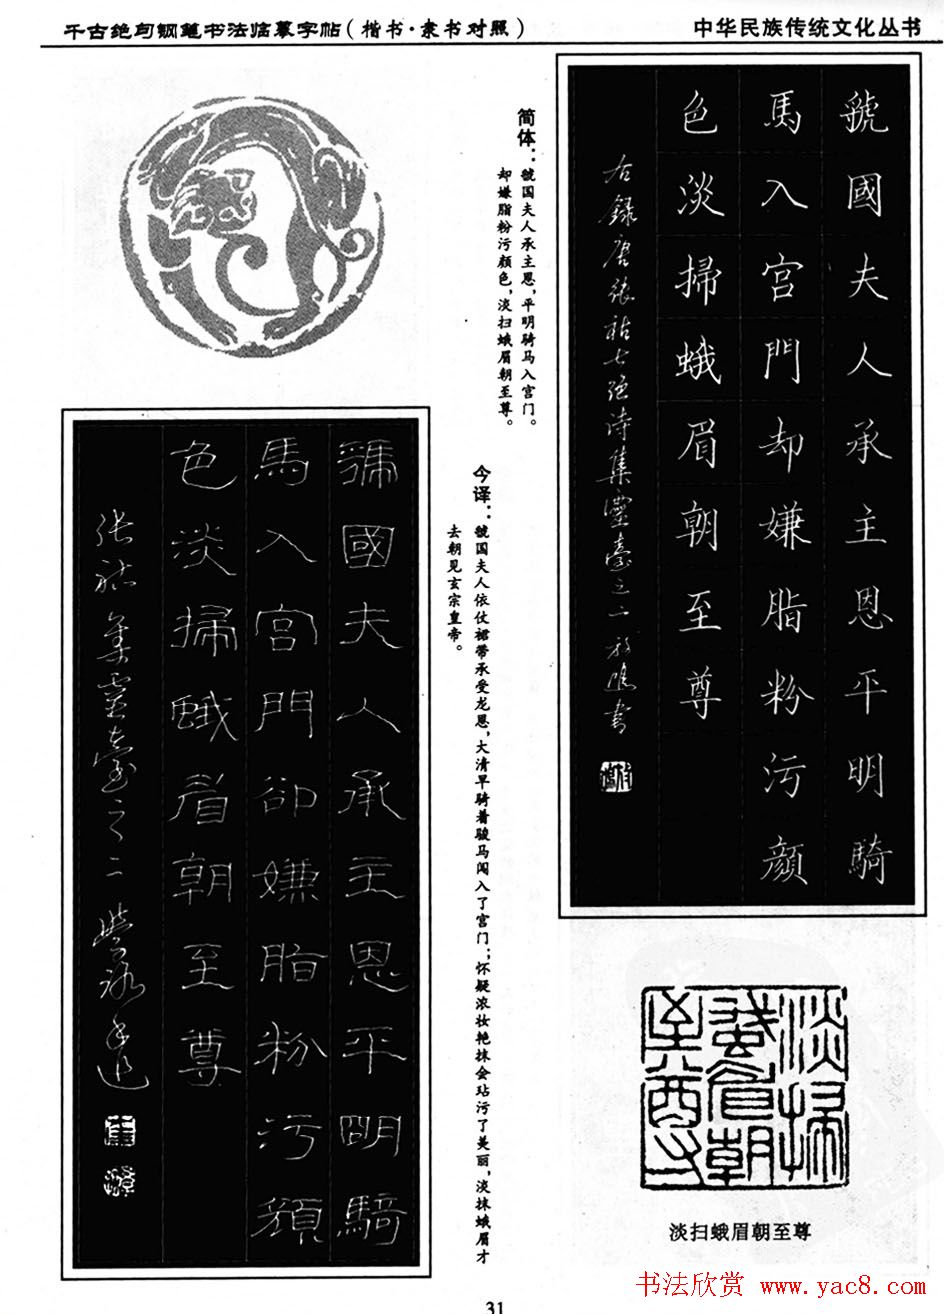 千古绝句钢笔书法临摹字帖(楷书·隶书对照)
中华民族传统文化丛书
虢國夫人承主恩平明騎
馬入宫門却嫌脂粉污顔
色淡掃蛾眉朝至尊
右錄唐張祜七絶詩集靈臺之二
简体：虢国夫人承主恩，平明骑马入宫门。
却嫌脂粉污颜色，淡扫蛾眉朝至尊。
今译：虢国夫人依仗裙带承受龙恩，大清早骑着骏马闯入了宫门；怀疑浓妆艳抹会玷污了美丽，淡抹蛾眉才
去朝见玄宗皇帝。
虢國夫人承主恩平明騎
馬入宫門卻嫌脂粉污顔
色淡掃蛾眉朝至尊
张祜集靈臺之二
淡掃蛾眉朝至尊
淡扫蛾眉朝至尊
31
书法欣赏 www.yac8.com